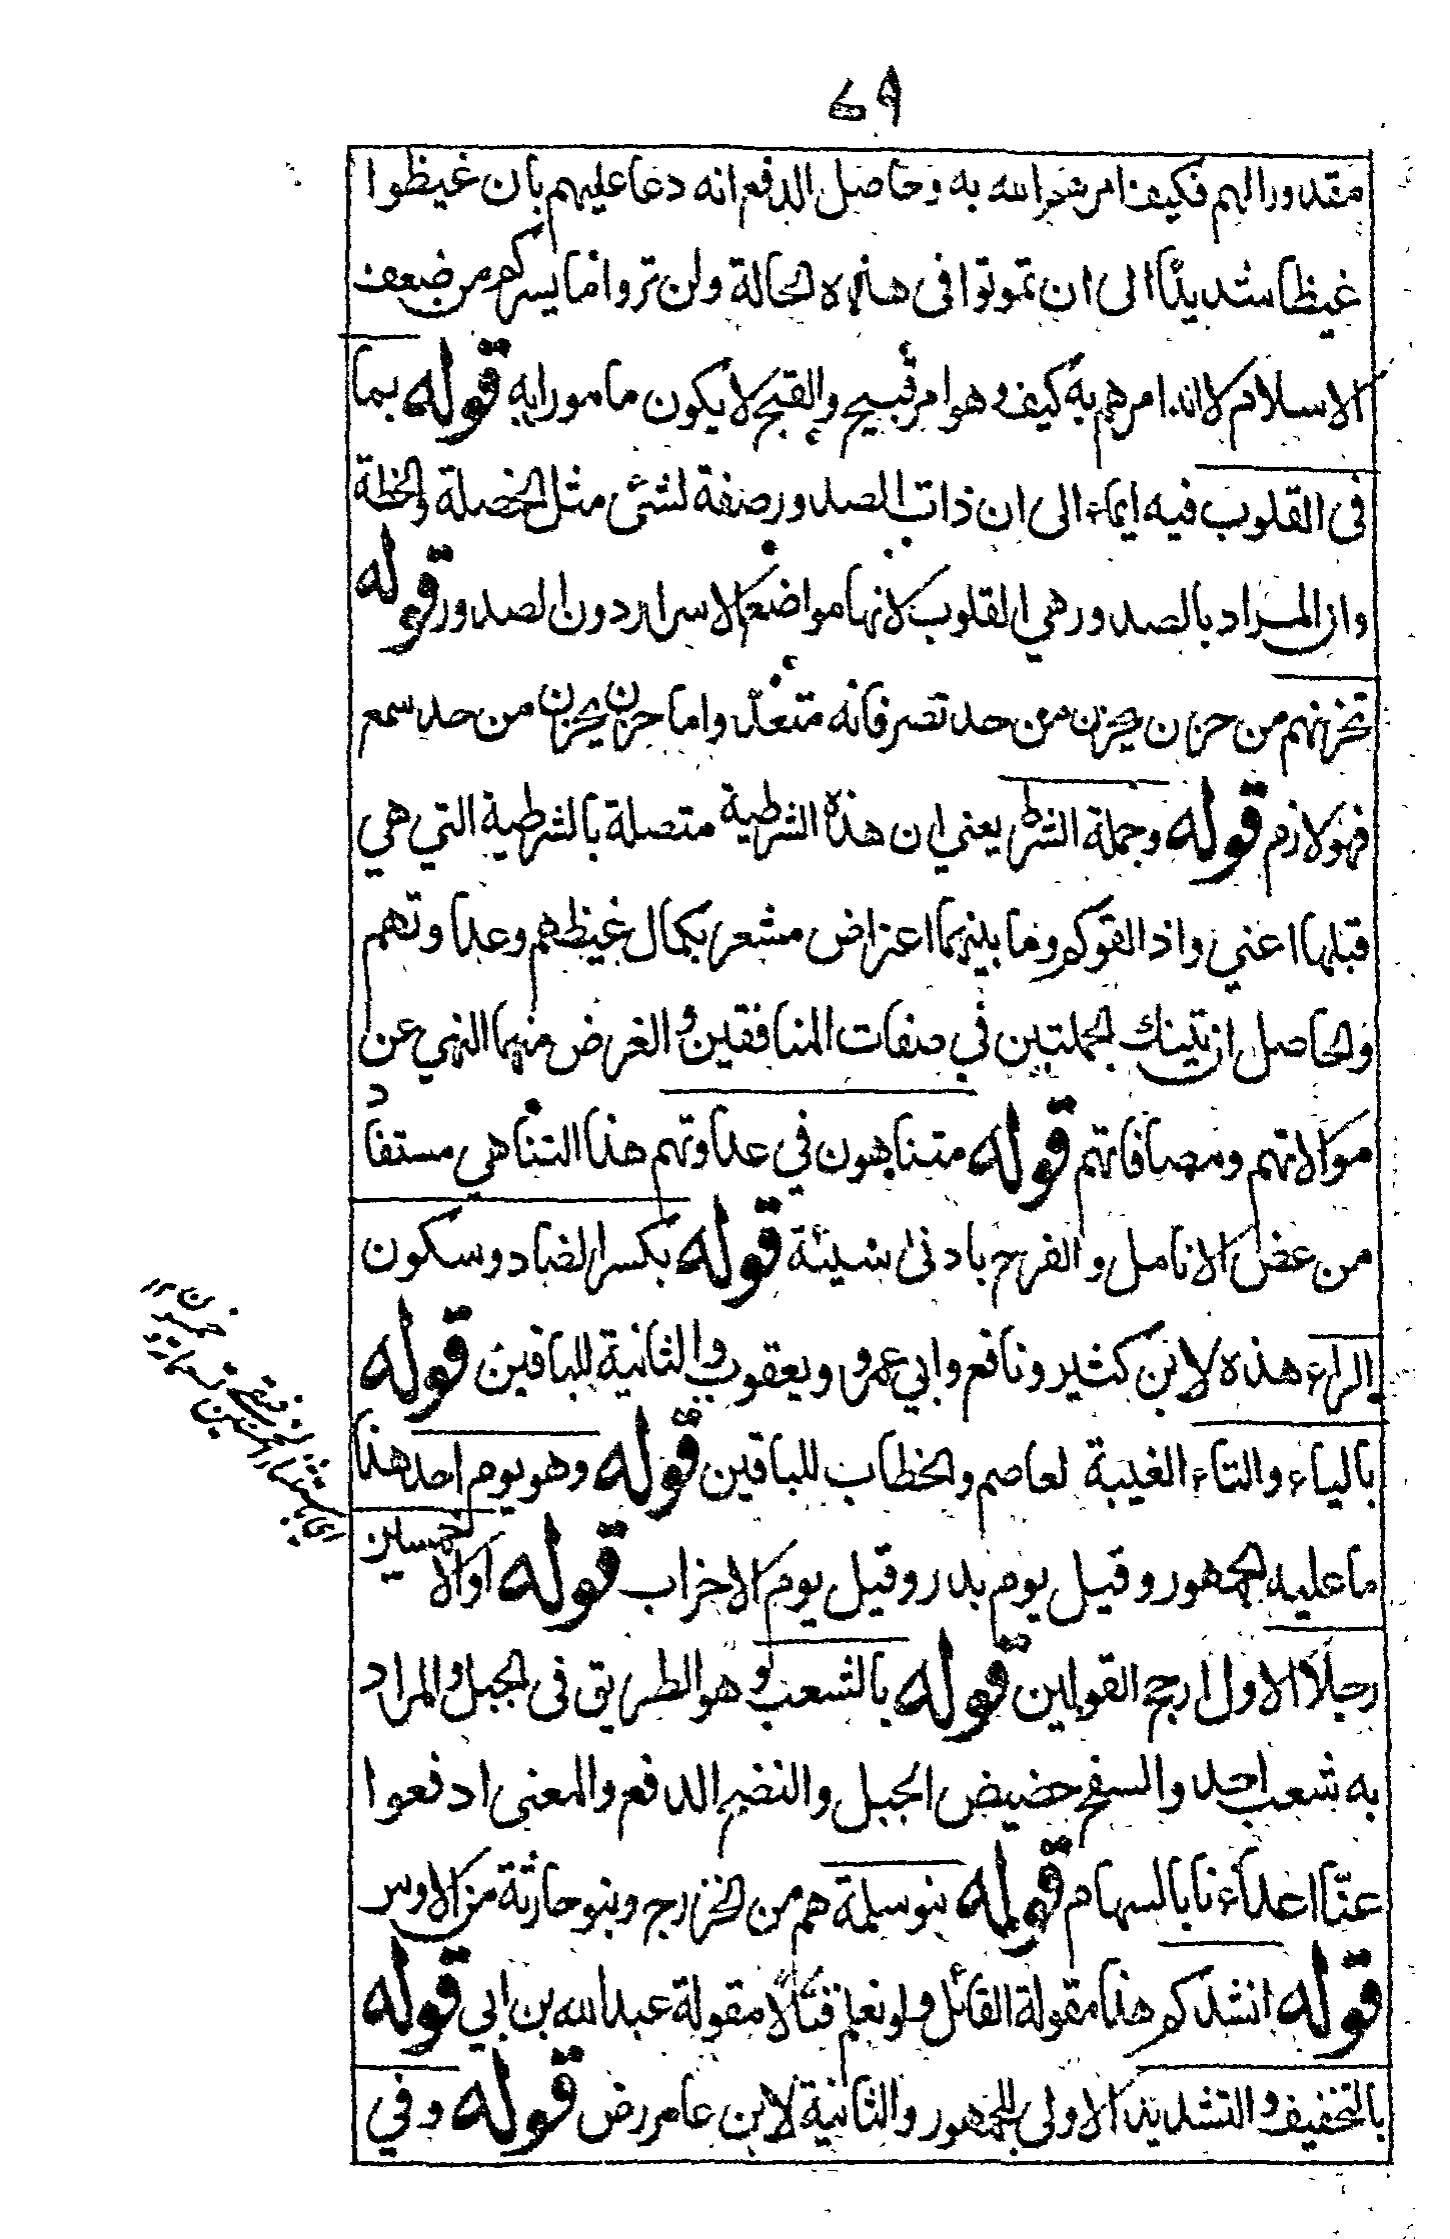 ٦٩
مقدورا لهم فكيف امر شر الله به وحاصل الدفع انه دعا عليهم بان غيظوا
غيظا شديدًا الى ان تموتوا فى هذه الحالة ولن تروا ما يسركم من ضعف
الاسلام لا انه امرهم به كيف وهو امر قبيح والقبيح لا يكون مامورا به قوله بما
فى القلوب فيه ايماء الى ان ذات الصدور صفة لشئ مثل الخصلة والخطة
وان المراد بالصدور هي القلوب لانها مواضع الاسرار دون الصدور قوله
تحزنهم من حزن يحزن من حد نصر فانه متعدّ واما حزن يحزن من حد سمع
فهو لازم قوله وجملة الشرط يعني ان هذه الشرطية متصلة بالشرطية التي هي
قبلها اعني واذا لقوكم وما بينهما اعتراض مشعر بكمال غيظهم وعداوتهم
والحاصل ان تينك الجملتين في صفات المنافقين و الغرض منهما النهي عن
موالاتهم ومصافاتهم قوله متناهون في عداوتهم هذا التناهي مستفاد
من عض الانامل والفرح بادنى سيئة قوله بكسر الضاد وسكون
الراء هذه لابن كثير ونافع وابي عمرو ويعقوب والثانية للباقين قوله
بالياء والتاء الغيبة لعاصم والخطاب للباقين قوله وهو يوم احد هذا
ما عليه الجمهور وقيل يوم بدر وقيل يوم الاحزاب قوله او الا خمسين
رجلًا الاول ارجح القولين قوله بالشعب وهو الطريق فى الجبل والمراد
به شعب احد والسفح حضيض الجبل والنضح الدفع والمعنى ادفعوا
عنّا اعداءنا بالسهام قوله بنو سلمة هم من الخزرج وبنو حارثة من الاوس
قوله انشدكم هذا مقولة القائل ولو نعلم قتالًا مقولة عبد الله بن ابي قوله
بالتخفيف والتشديد الاولى للجمهور والثانية لابن عامر رض قوله وفي